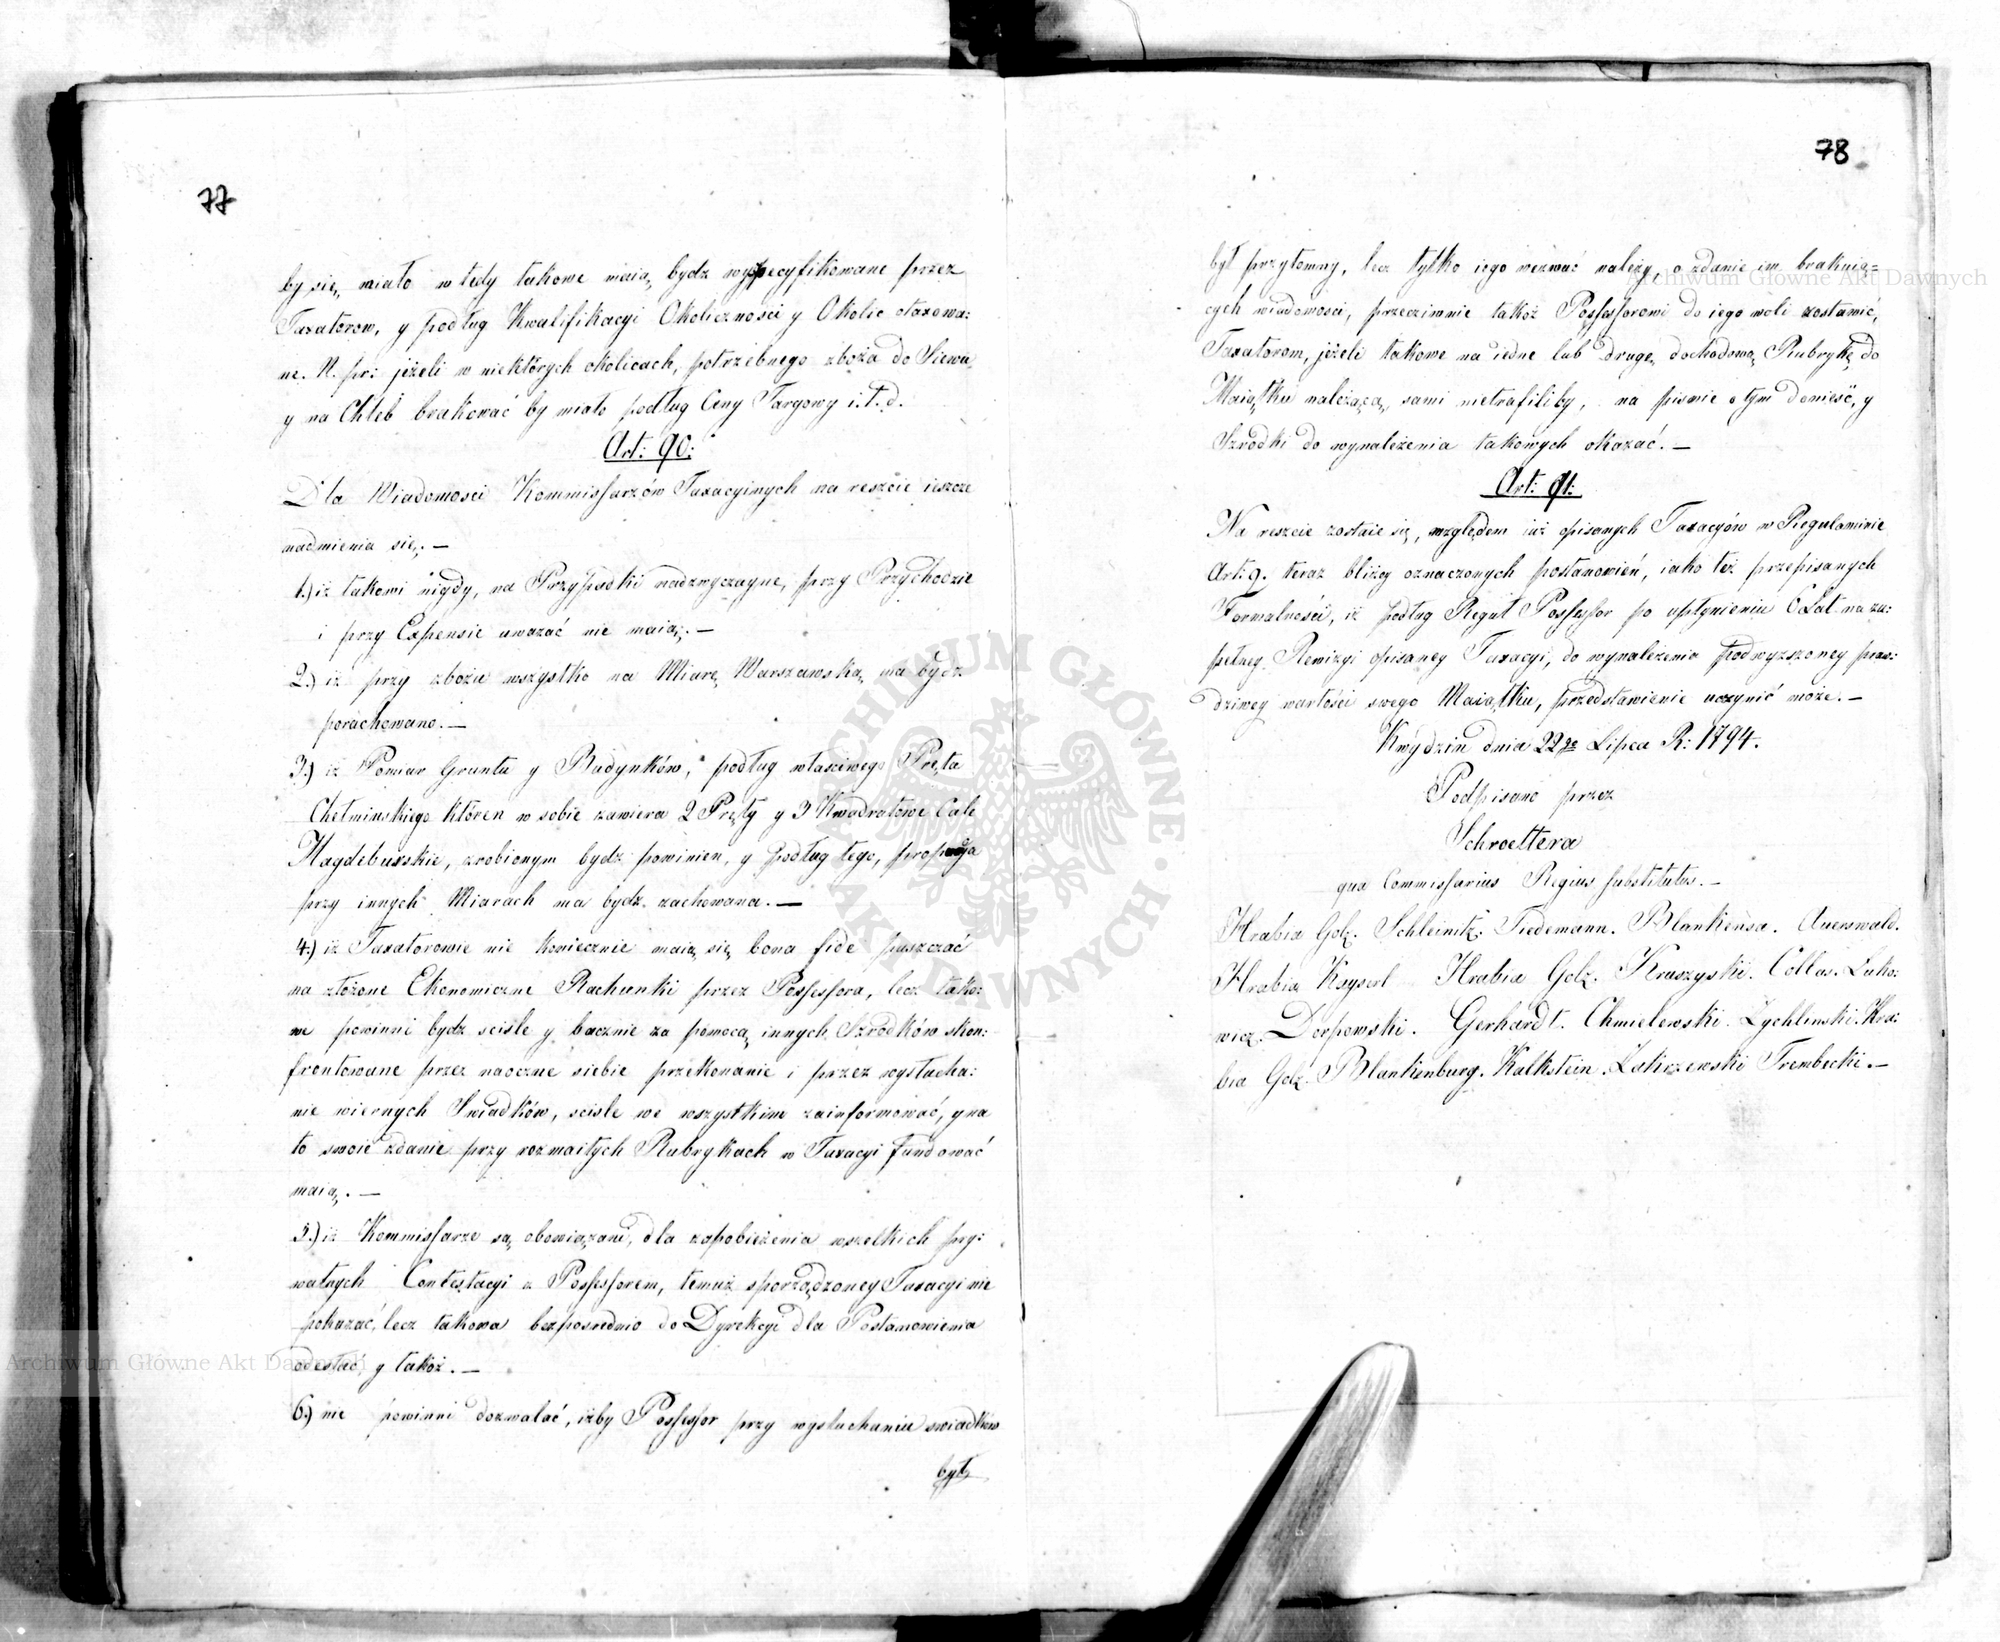 77
by się miało w tedy takowe maią bydz wyspecyfikowane przez
Taxatorow, y podług Kwalifikacyi Okoliczności y Okolic otaxowa:
ne. N. pr: jeżeli w niektórych okolicach, potrzebnego zboża do Siewu
y na Chleb brakować by miało podług Ceny Targowy i.t.d.
Art: 90:
Dla Wiadomosci Kommissarzów Taxacyinych na reszcie ieszcze
nadmienia się. —
1.) iż takowi nigdy, na Przypadki nadzwyczayne, przy Przychodzie
i przy Expensie uwazać nie maią. —
2.) iż przy zbożu wszystko na Miarę Warszawską ma bydz
porachowano. —
3.) iż Pomiar Gruntu y Budynków, podług własciwego Pręta
Chełminskiego ktören w sobie zawiera 2 Pręty y 3 Kwadratowe Cale
Magdeburskie, zrobionym bydz powinien, y podług tego, propocya
przy innych Miarach ma bydz zachowana. —
4.) iż Taxatorowie nie koniecznie maią się bona fide puszczać
na złożone Ekonomiczne Rachunki przez Possessora, lecz tako:
we powinni bydz scisle y bacznie za pomocą innych Szrodków skon:
frontowane przez naoczne siebie przekonanie i przez wysłucha:
nie wiernych Swiadków, scisle we wszystkim zainformować, y na
to swoie zdanie przy rozmaitych Rubrykach w Taxacyi fundować
maią. —
5.) iż Kommissarze są obowiązani, dla zapobieżenia wszelkich pry:
watnych Contestacyi z Possessorem, temuż sporządzoney Taxacyi nie
pokazać, lecz takowa bezposrednio do Dyrekcyi dla Postanowienia
odesłać y takoż. —
6.) nie powinni dozwalać, iżby Possessor przy wysłuchaniu swiadków
był
78
był przytomny, lecz tylko iego wezwać należy, o zdanie im brakuią=
cych wiadomosci, przeciwnie takoż Possessorowi do iego woli zostawić,
Taxatorom, jeżeli takowe na iedne lub drugę dochodowę Rubrykę do
Maiątku należącą, sami nie trafiliby, na pismie o tym donieść, y
Szrodki do wynalezenia takowych okazać. —
Art: 91:
Na reszcie zostaie się, względem iuż opisanych Taxacyów w Regulaminie
Art: 9. teraz bliżey oznaczonych postanowień, iako też przepisanych
Formalności, iż podług Reguł Possessor po upłynieniu 6 Lat na zu:
pełney Rewizyi opisaney Taxacyi, do wynalezenia podwyzszoney praw:
dziwey wartości swego Maiątku, przedstawienie uczynić może. —
Kwydzin dnia 22go Lipca R: 1794.
Podpisano przez
Schroettera
qua Commissarius Regius substitutus. —
Hrabia Golz. Schleinitz. Tiedemann. Blankensa. Auerswald.
Hrabia Kayserl Hrabia Golz. Kruszyski. Collas. Luko:
wicz. Dorpowski. Gerhardt. Chmielewski. Zychlinski. Hra:
bia Golz. Blankenburg. Kalkstein. Zakrzewski Trembecki. —
Archiwum Główne Akt Dawnych
Archiwum Główne Akt Dawnych
ARCHIWUM GŁÓWNE AKT DAWNYCH